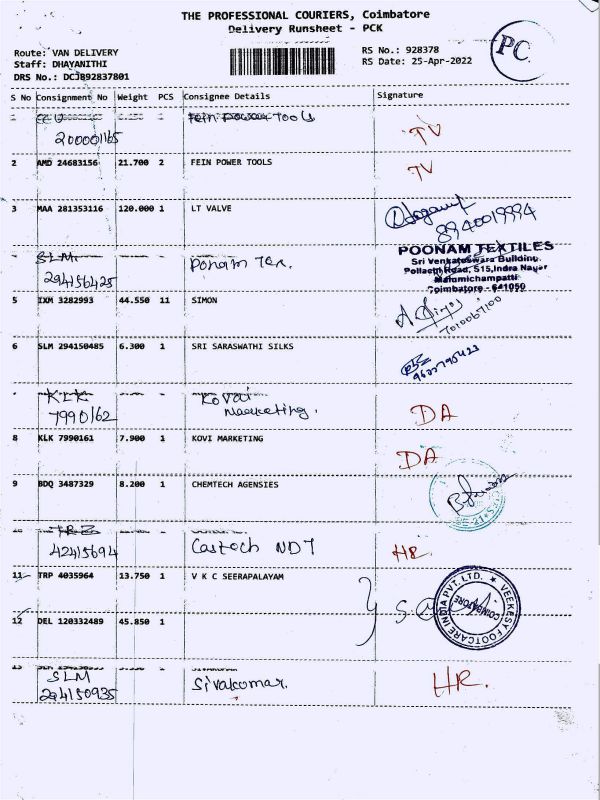 THE PROFESSIONAL COURIERS, Coimbatore
Delivery Runsheet - PCK
PC
Route: VAN DELIVERY
Staff: DHAYANITHI
DRS No.: DCJ892837801
RS No.: 928378
RS Date: 25-Apr-2022
S No Consignment No Weight PCS Consignee Details Signature
200001165 Fein Power Tools TV
2 AMD 24683156 21.700 2 FEIN POWER TOOLS TV
3 MAA 281353116 120.000 1 LT VALVE
8940019994
SLM
294156425 Ponam Tex.
POONAM TEXTILES
Sri Venkateswara Building
Pollachi Road, 515, Indra Nagar
Malumichampatti
Coimbatore - 641050
5 IXM 3282993 44.550 11 SIMON
7010067100
6 SLM 294150485 6.300 1 SRI SARASWATHI SILKS
KLK Kovai
7990162 Marketing. DA
8 KLK 7990161 7.900 1 KOVI MARKETING DA
9 BDQ 3487329 8.200 1 CHEMTECH AGENSIES
42415694 Castech NDT HR
11 TRP 4035964 13.750 1 V K C SEERAPALAYAM
VEEKESY FOOTCARE INDIA PVT. LTD.
COIMBATORE
12 DEL 120332489 45.850 1
13
SLM
294150935 Sivakumar. HR.